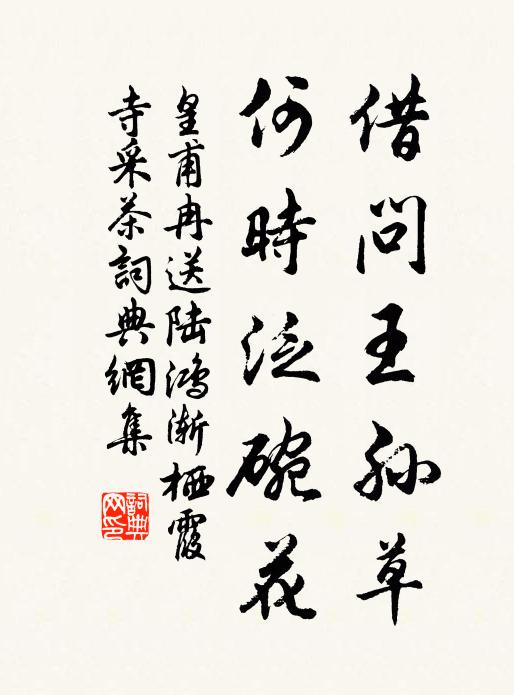 借問王孫草
何時泛碗花
皇甫冉送陆鴻漸栖霞
寺采茶詞典網集
詞典網印